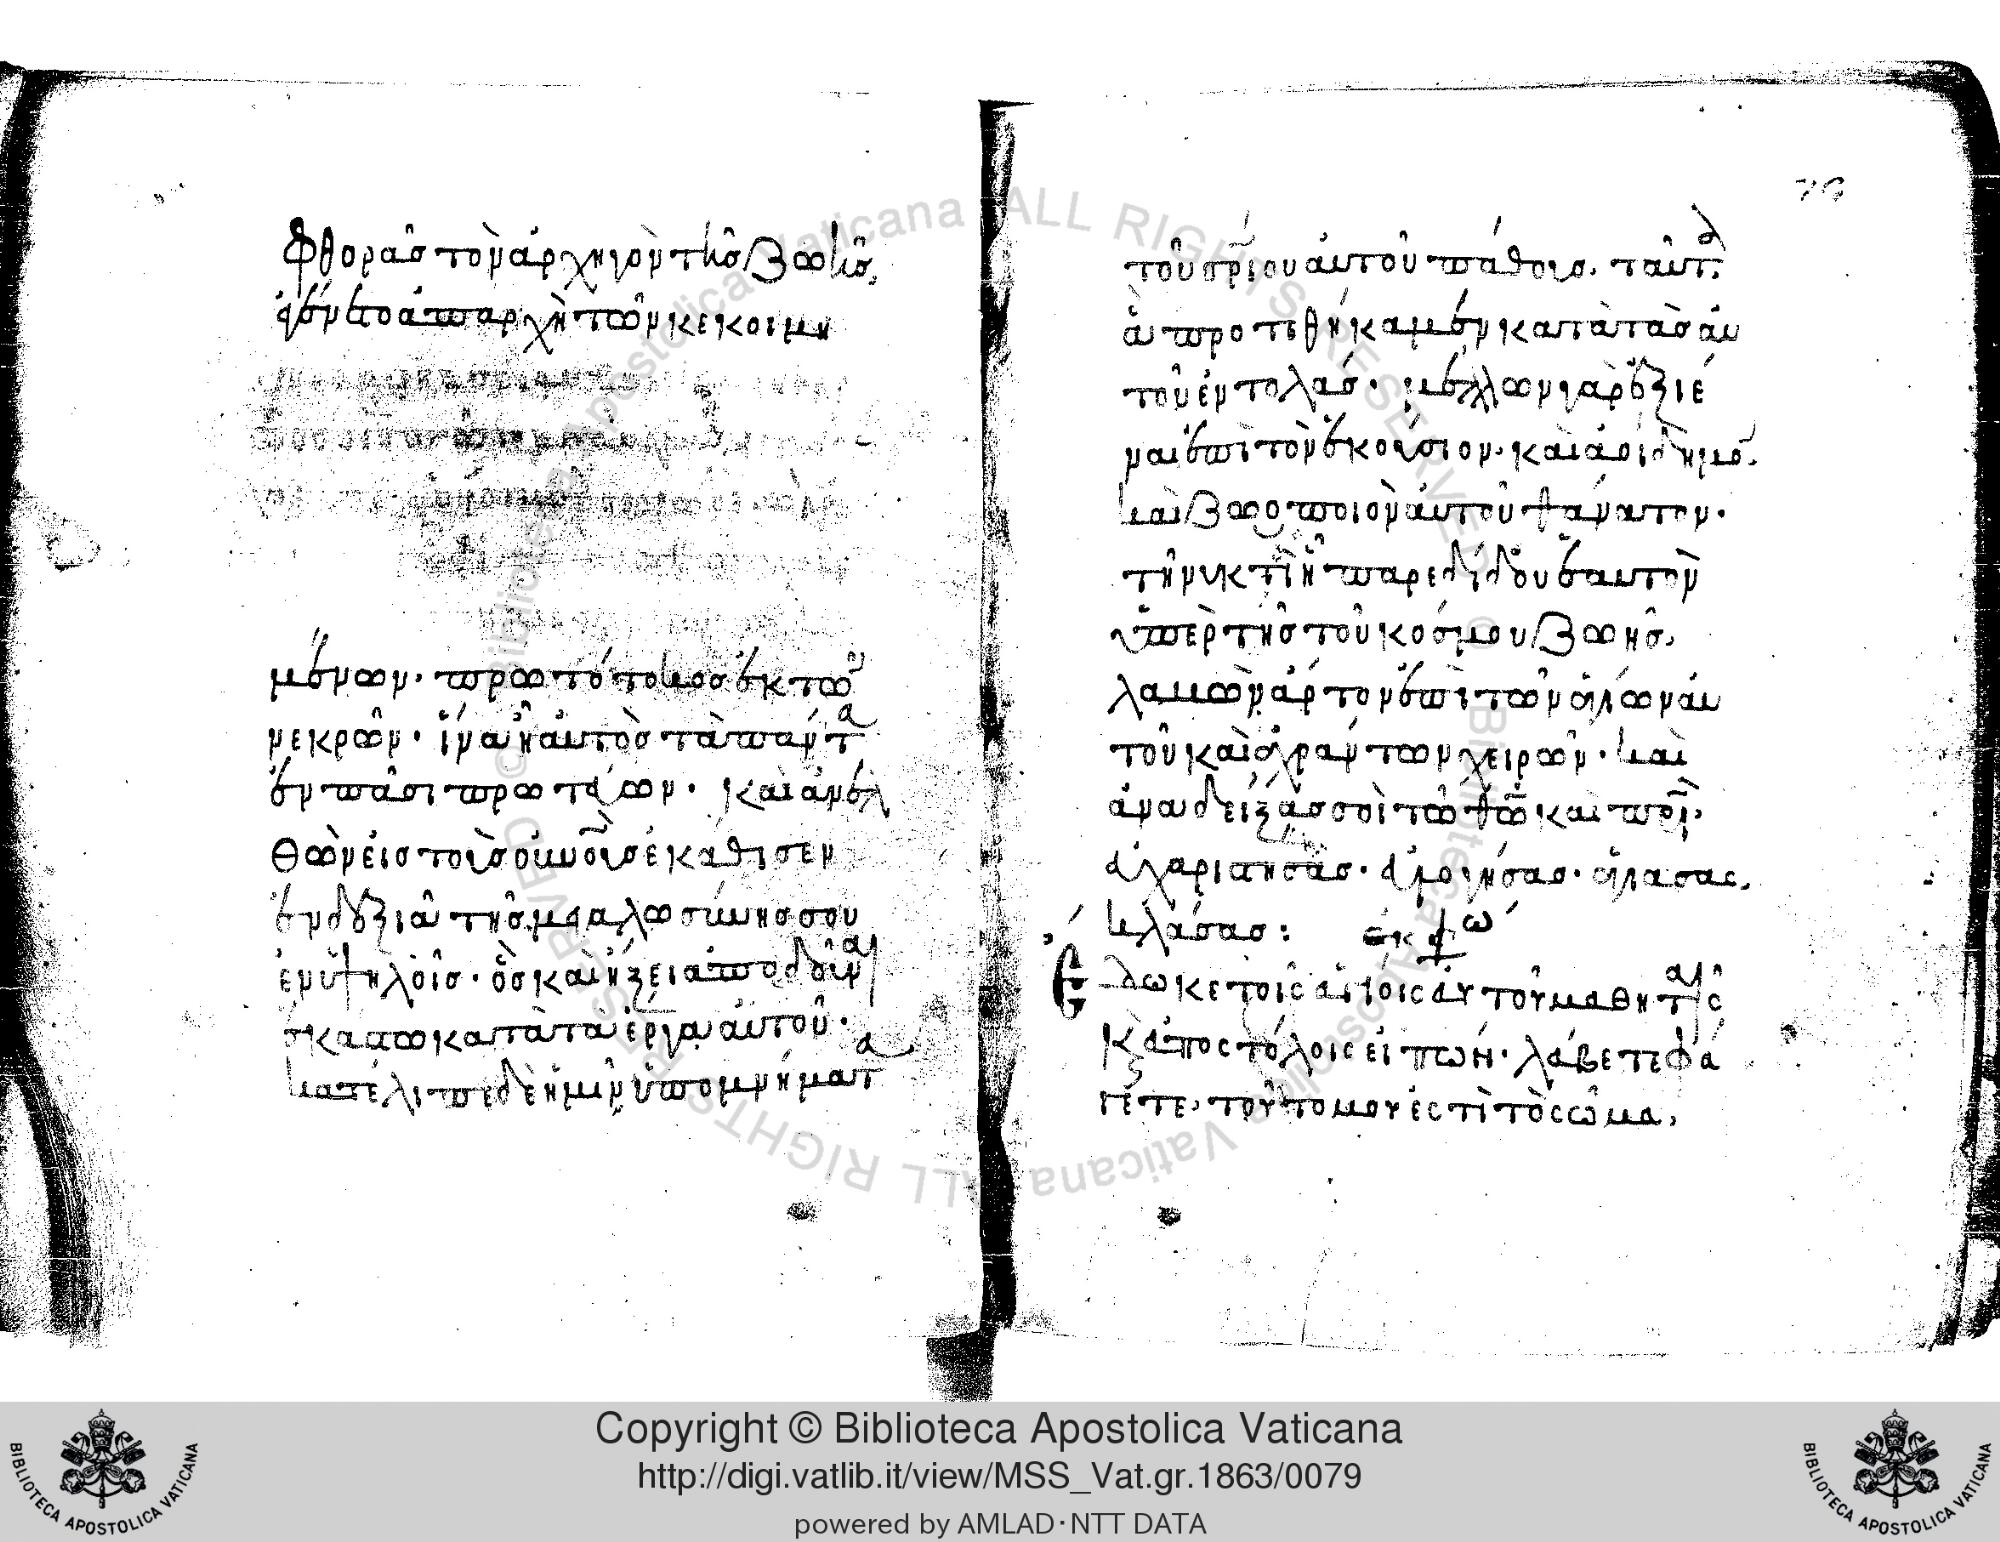 φθορᾶς τὸν ἀρχηγὸν τῆς ζωῆς,
ἐγένετο ἀπαρχὴ τῶν κεκοιμη
μένων· πρωτότοκος ἐκ τῶ
νεκρῶν· ἵνα ἦ αὐτὸς τὰ πάντα
ἐν πᾶσι πρωτεύων· καὶ ἀνελ
θὼν εἰς τοὺς οὐνοὺς ἐκάθισεν
ἐν δεξιᾶ τῆς μεγαλωσύνης σου
ἐν ὑψηλοῖς· ὃς καὶ ἥξει ἀποδοῦναι
ἑκάστω κατὰ τὰ ἔργα αὐτοῦ·
κατέλιπε δὲ ἡμῖν ὑπομνήματα
τοῦ σρίου αὐτοῦ πάθους. ταῦτ
ἃ προτεθήκαμεν κατὰ τὰς αὐ
τοῦ ἐντολάς· μέλλων γὰρ ἐξιέ
ναι ἐπὶ τὸν ἑκούσιον, καὶ ἀοίδημο
καὶ ζωοποιὸν αὐτοῦ θάνατον·
τῆ νυκτὶ ἧ παρεδίδου ἑαυτὸν
ὑπὲρ τῆς τοῦ κόσμου ζωῆς,
λαβὼν ἄρτον ἐπὶ τῶν ἁγίων αὐ
τοῦ καὶ ἀχράντων χειρῶν· καὶ
ἀναδείξας σοὶ τῶ θῶ καὶ πρὶ.
εὐχαριστήσας· εὐλογήσας· ἁγιάσας,
κλάσας: ἐκφώ
Ἔδωκε τοῖς ἁγίοις αὐτοῦ μαθηταῖς
κ ἀποστόλοις εἰπών· λάβετε φά
γετε, τοῦτο μου ἐστὶ τὸ σῶμα,
79
Copyright © Biblioteca Apostolica Vaticana
http://digi.vatlib.it/view/MSS_Vat.gr.1863/0079
powered by AMLAD·NTT DATA
BIBLIOTECA APOSTOLICA VATICANA
BIBLIOTECA APOSTOLICA VATICANA